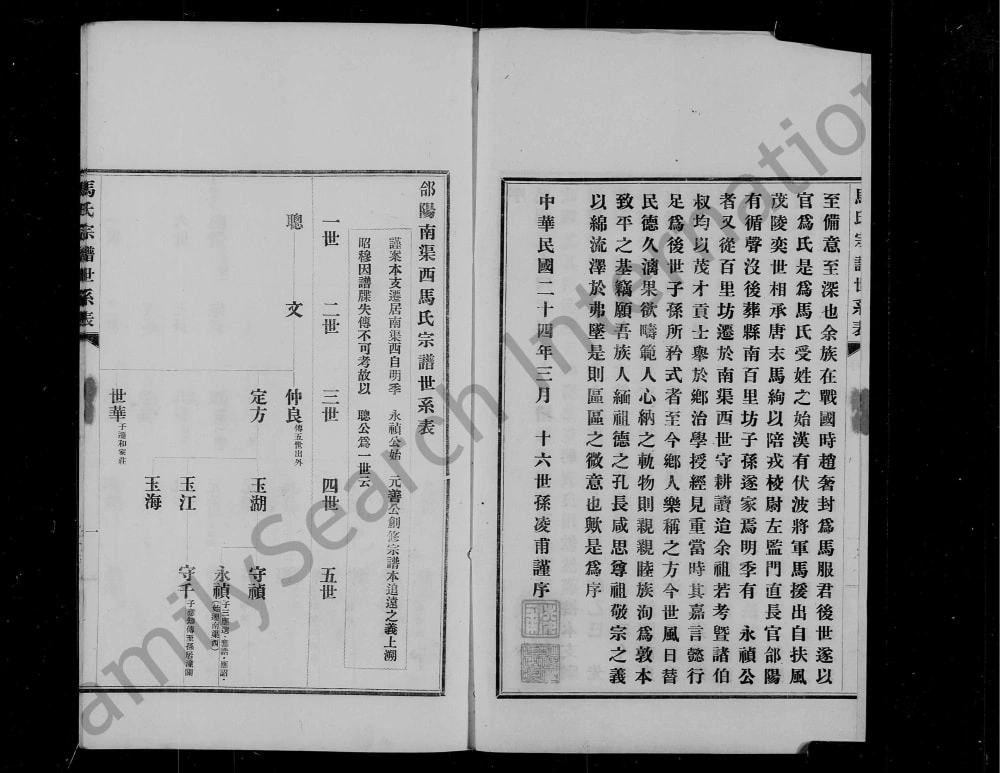 馬氏宗譜世系表
至備意至深也余族在戰國時趙奢封爲馬服君後世遂以
官爲氏是爲馬氏受姓之始漢有伏波將軍馬援出自扶風
茂陵奕世相承唐末馬絢以陪戎校尉左監門直長官郃陽
有循聲沒後葬縣南百里坊子孫遂家焉明季有 永禎公
者又從百里坊遷於南渠西世守耕讀迨余祖若考暨諸伯
叔均以茂才貢士舉於鄉治學授經見重當時其嘉言懿行
足爲後世子孫所矜式者至今鄉人樂稱之方今世風日替
民德久漓果欲疇範人心納之軌物則親親睦族洵爲敦本
致平之基竊願吾族人緬祖德之孔長咸思尊祖敬宗之義
以綿流澤於弗墜是則區區之微意也歟是爲序
中華民國二十四年三月 十六世孫凌甫謹序
郃陽南渠西馬氏宗譜世系表
謹案本支遷居南渠西自明季 永禎公始 元善公創修宗譜本追遠之義上溯
昭穆因譜牒失傳不可考故以 聰公爲一世云
一世 二世 三世 四世 五世
聰 文 仲良 傳五世出外
定方 玉湖 守禎
永禎 子三應選·應詔· (始遷南渠西)
玉江 守千 子 傳至孫居潼關
玉海
世華 子遷和家莊
馬氏宗譜世系表
一
FamilySearch International